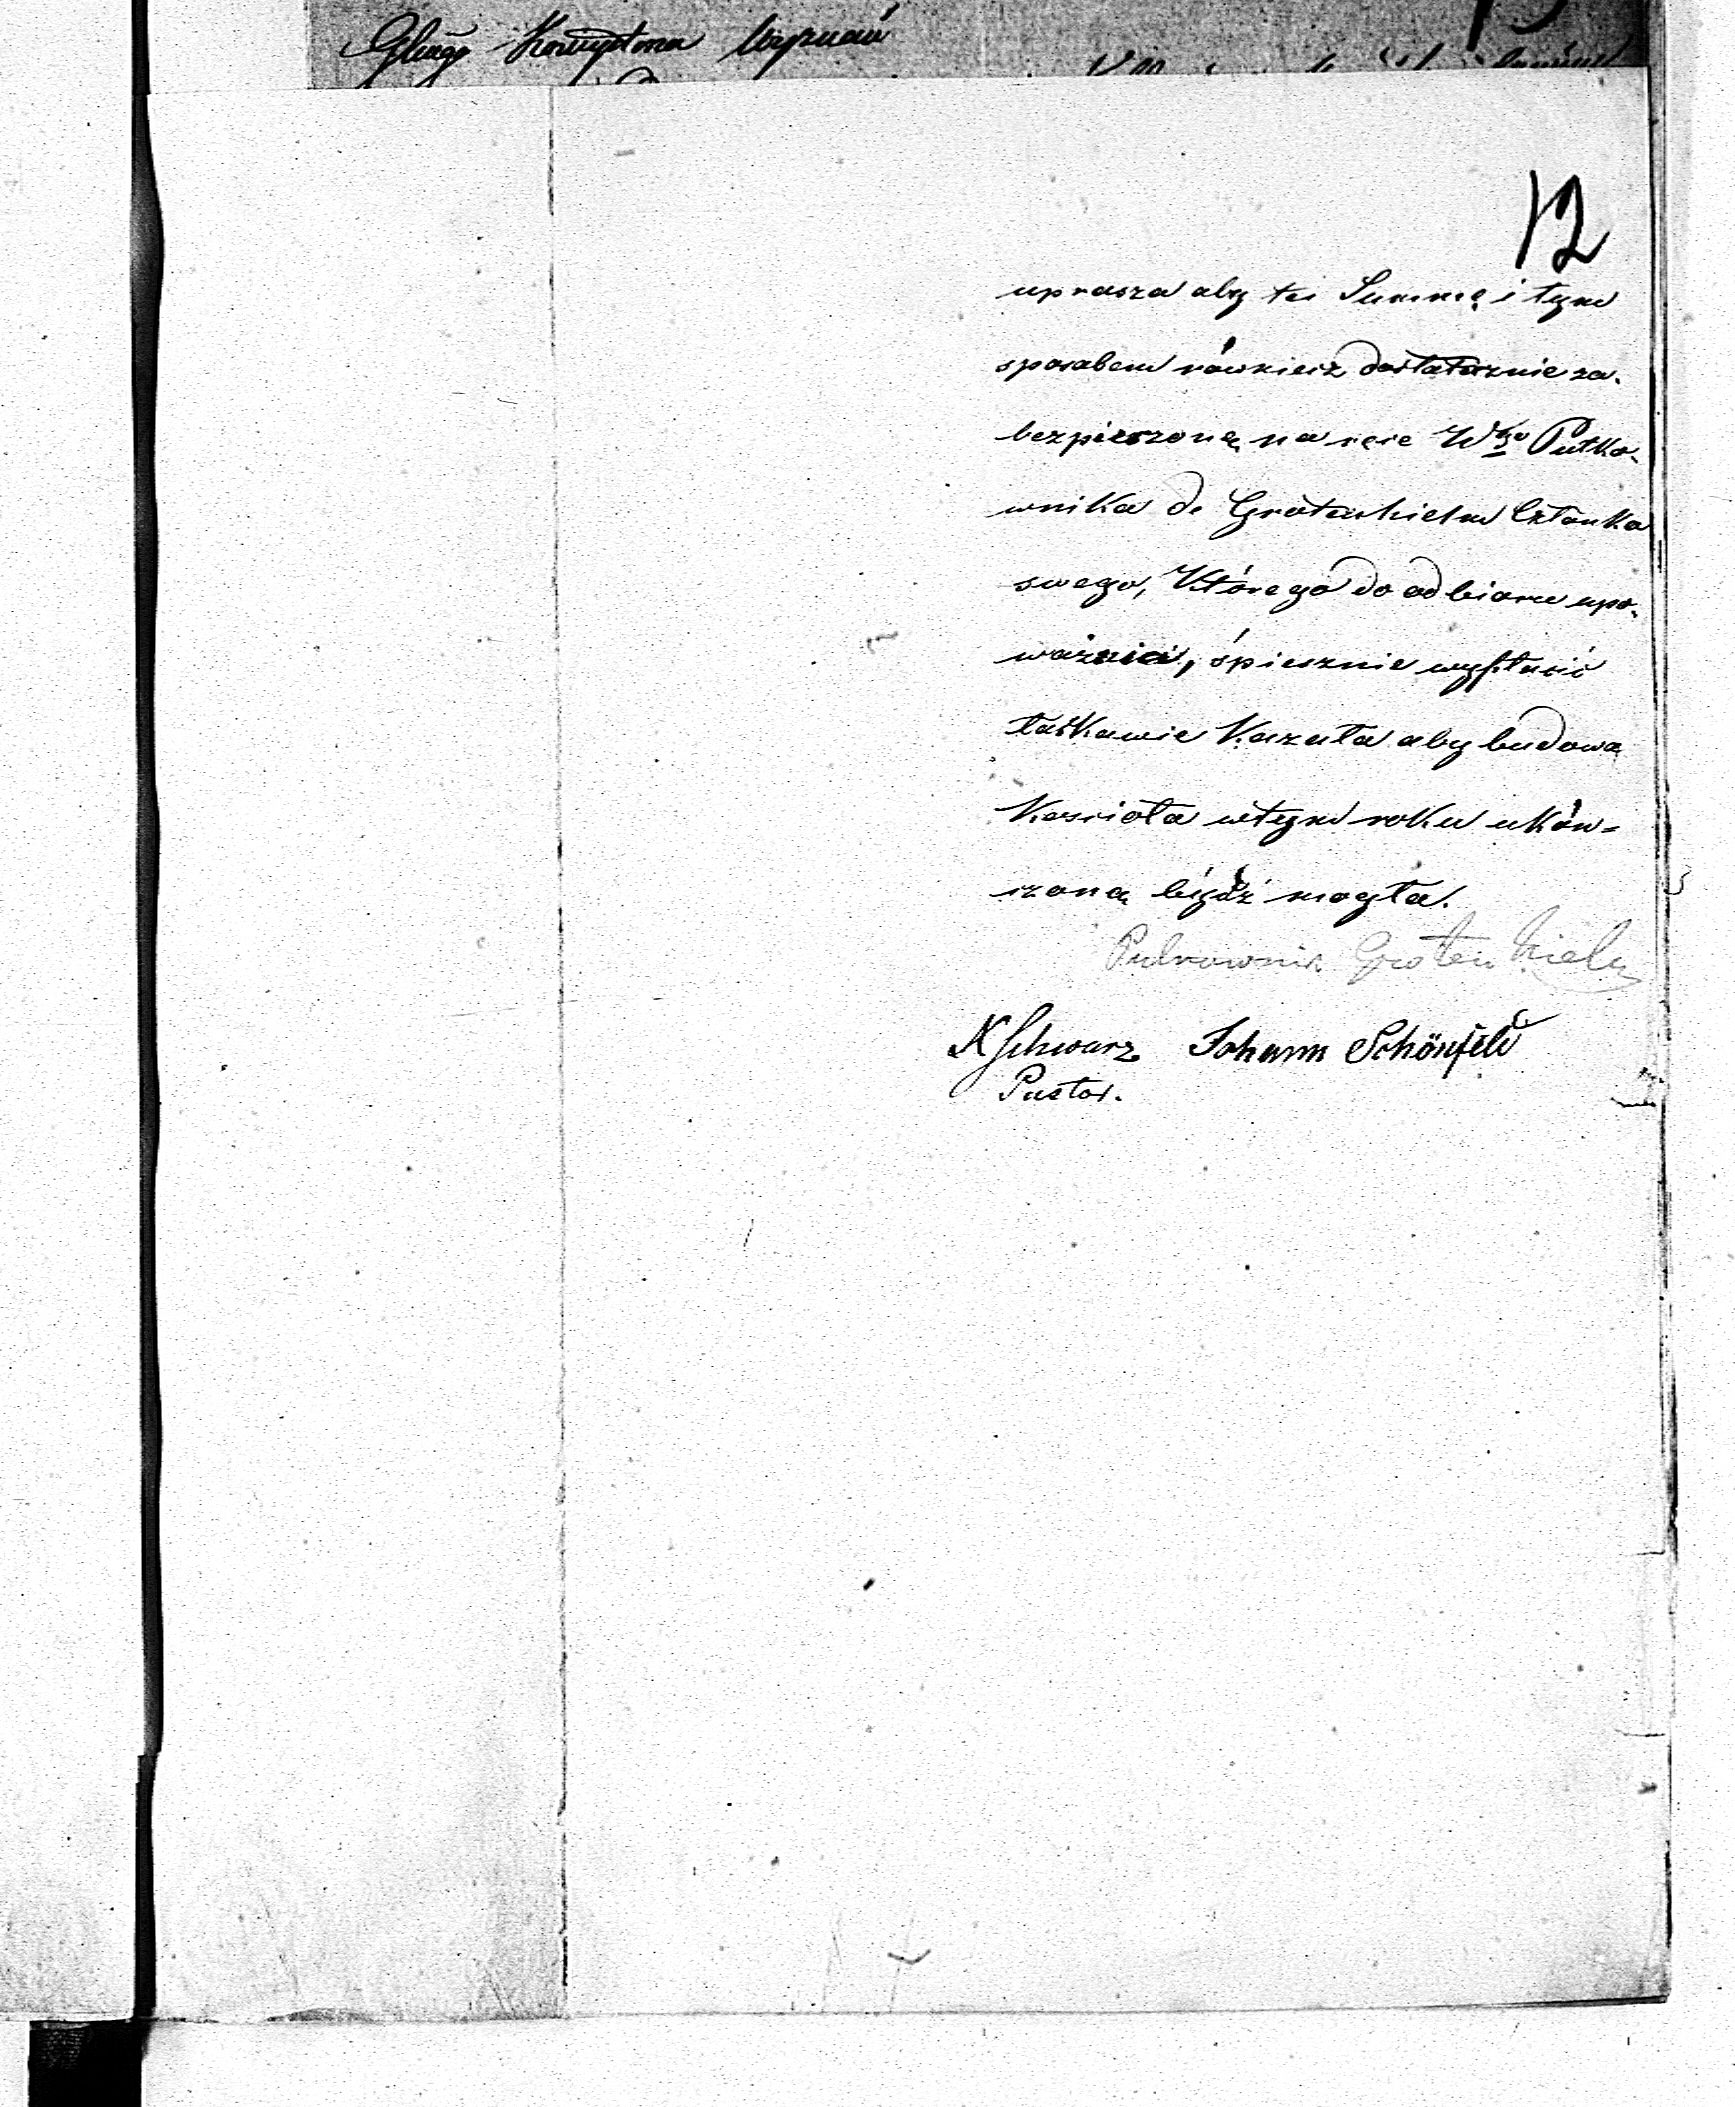 12
uprasza aby tę Summę i tym
sposobem równierz dostatecznie za-
bezpieczoną na ręce Wgo Pułko-
wnika de Grotenhielm Członka
swego, Którego do odbioru upo-
ważnia, śpiesznie wypłacić
łaskawie Kazała aby budowa
Kościoła w tym roku ukoń-
czoną bydź mogła.
Pułkownik Grotenhielm
Schwarz Johann Schönfeld
Pastor.